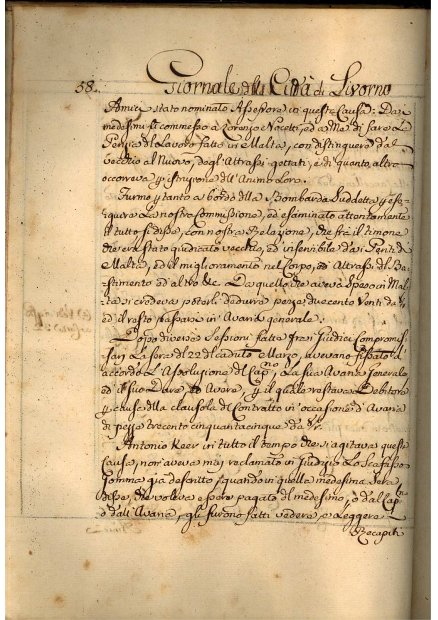 58. Giornale della Città di Livorno
Amici stato nominato Assessore in queste Causa: Da
medesimi fù commesso à Lorenzo Nocetti, ed à Me di fare la
Perizia di Lavoro fatto in Malta, con distinguere dal
vecchio al Nuovo, degl'Attrassi gettati, e di quanto altro
occoreva per istruzione dell'Animo Loro.
Fummo pertanto à bordo della Bombarda Suddetta per ese-
guire la nostra commissione, ed esaminato attentamente
il tutto si disse, con nostra Relazione, che frà il timone
che era stato giudicato vecchio, ed inservibile da i Periti di
Malta, ed il miglioramento nel Corpo, ed Attrassi del Ba-
stimento ed altro &c. Da quello che aveva speso in Mal-
ta si credeva potersi dedurre pezze duecento Venti da 8/r
ed il resto passare in Avaria generale.
Dopo diverse Sessioni fatte frà i Giudici Compromis-
sarj la sera del 22 del caduto Marzo, avevano fissato d'
accordo l'Assoluzione del Capno, la sua Avaria Generale
ed il suo Dare, ed Avere, per il quale restava Debitore
per causa della clausola di Contratto in occasione d'Avaria
di pezze trecento cinquantacinque da 8/r.
Antonio Keer in tutto il tempo che si agitava queste
Causa, non aveva mai reclamato in Giudizio lo Scafo, o
Gomma già descritto, quando in quella medesima Sera
disse, che voleva esser pagato del medesimo, o dal Capno
o dall'Avaria, gli furono fatti vedere, e Leggere
Recapiti